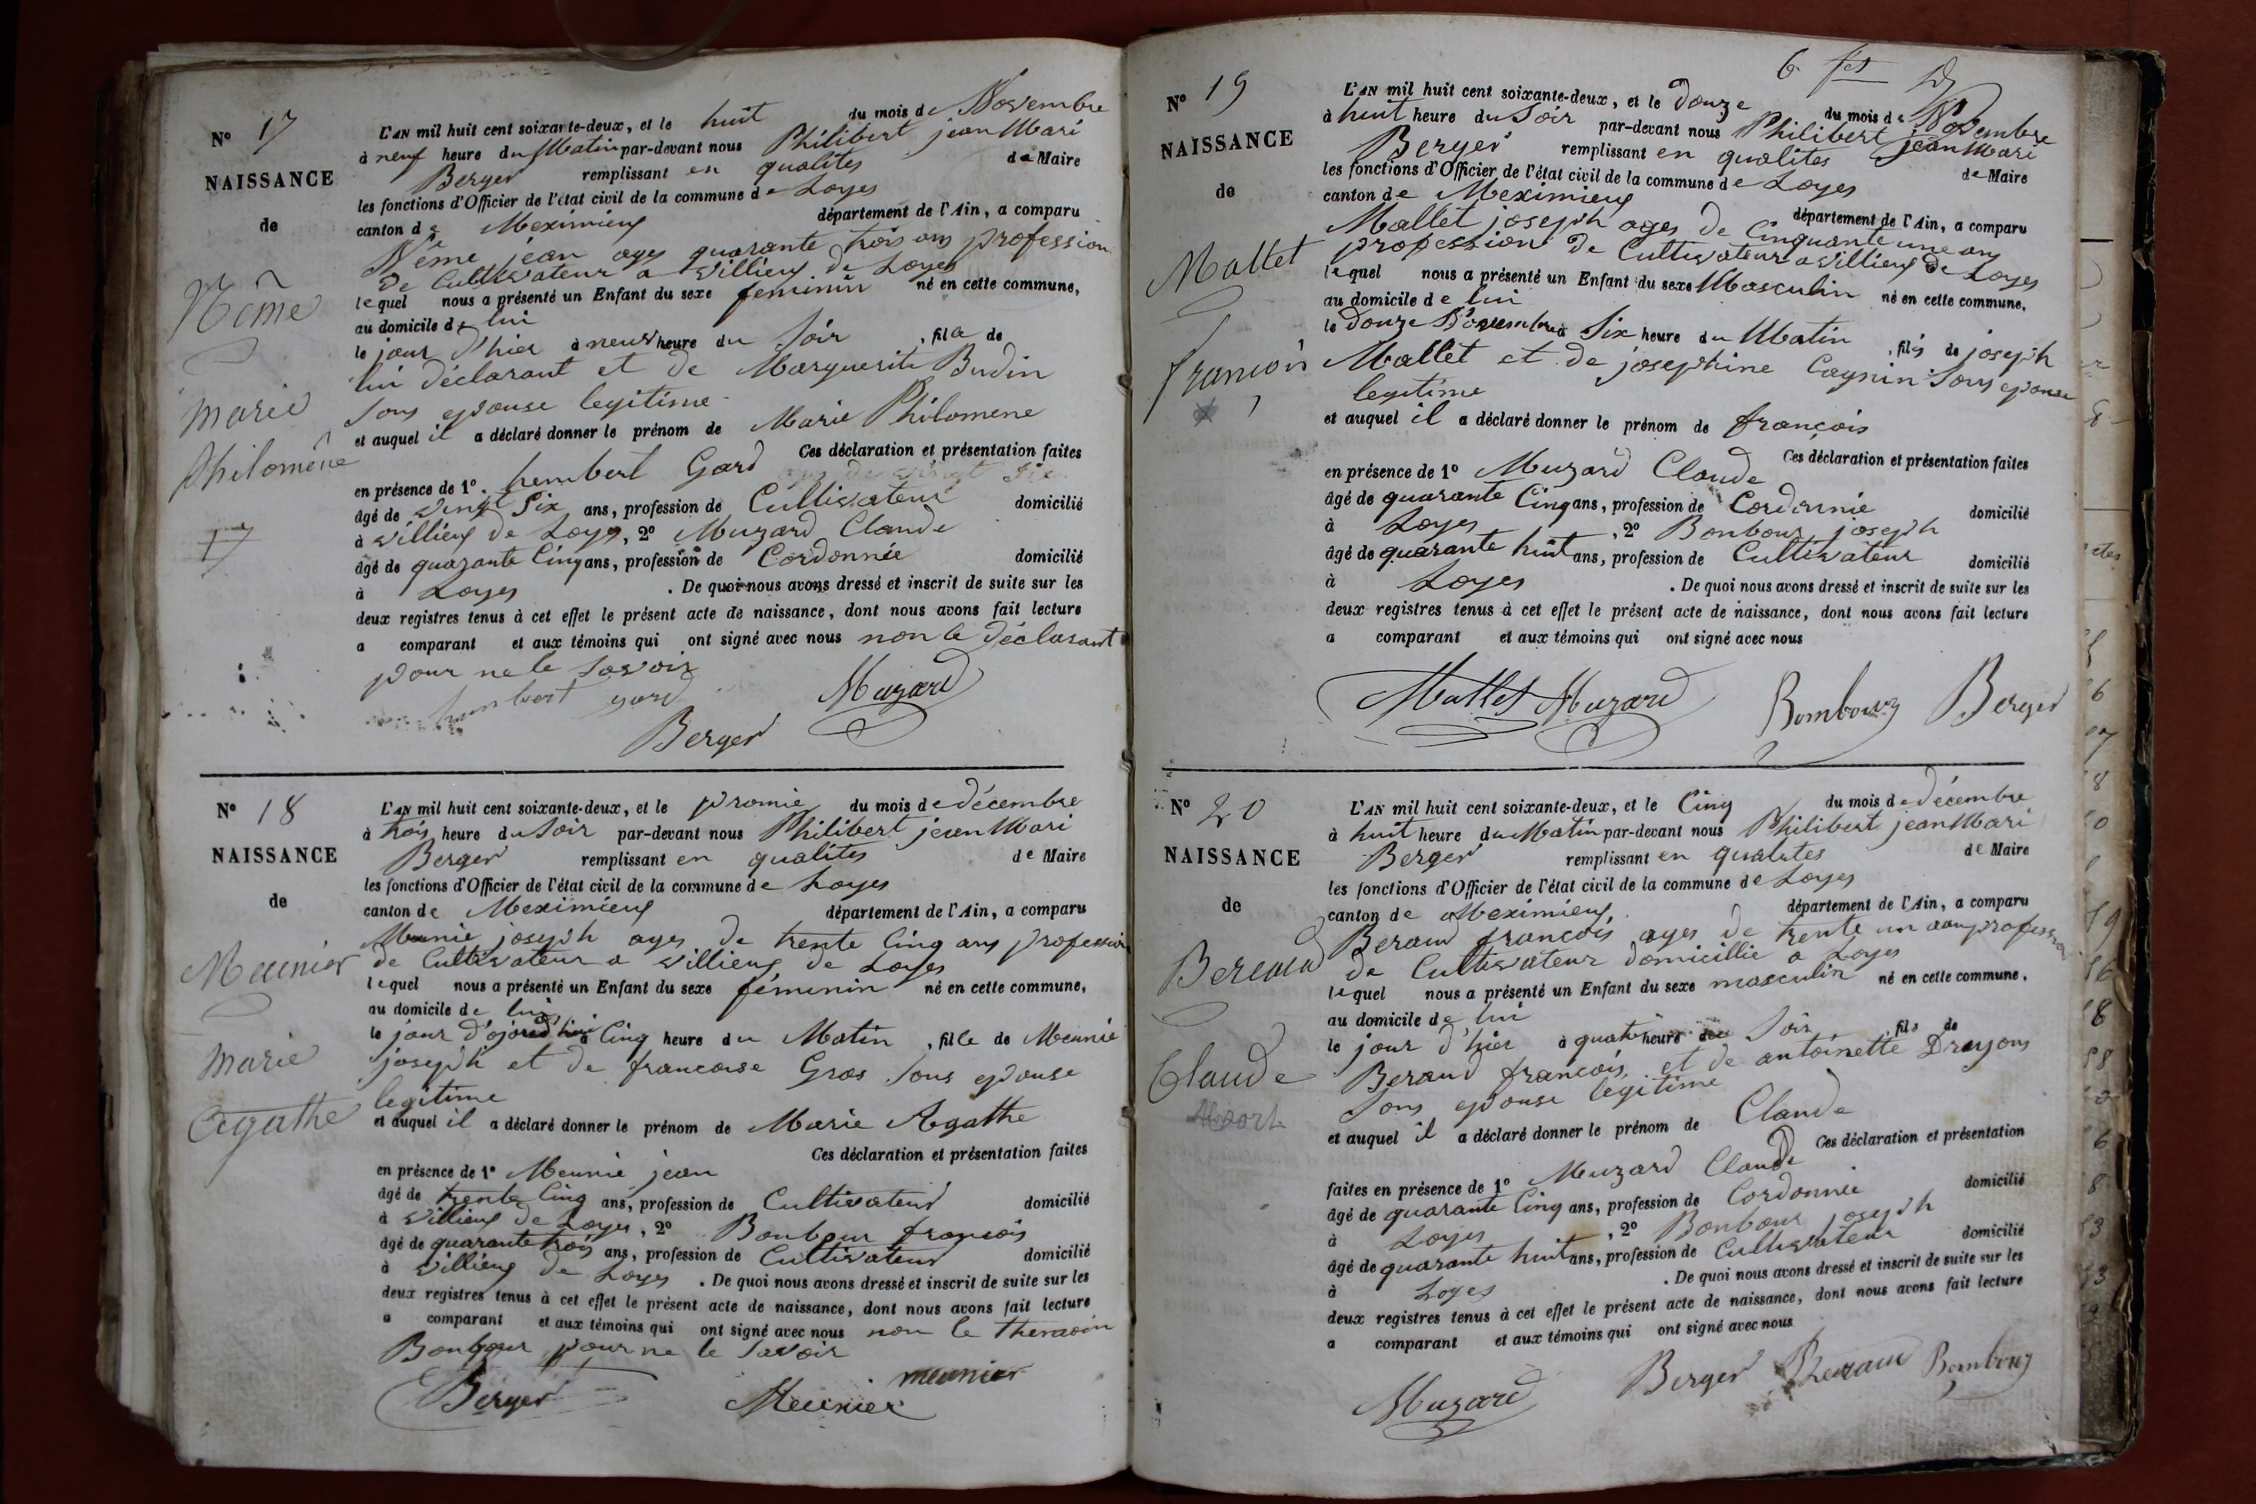 N° 17
NAISSANCE
de
Nême
marie
Philomène
17
L'AN mil huit cent soixante-deux, et le huit du mois de Novembre
à neuf heure du Matin par-devant nous Philibert jean Mari
Berger remplissant en qualites de Maire
les fonctions d'Officier de l'état civil de la commune de Loyes
canton de Meximieux département de l'Ain, a comparu
Nême jean ages quarante trois ans profession
de Cultivateur a villieux de Loyes
lequel nous a présenté un Enfant du sexe feminin né en cette commune,
au domicile de lui
le jour d'hier à neuf heure du Soir , fila de
lui déclarant et de Marguerite Budin
Sons epouse legitime
et auquel il a déclaré donner le prénom de Marie Philomene
Ces déclaration et présentation faites
en présence de 1° humbert Gard
âgé de vingt Six ans, profession de Cultivateur domicilié
à villieux de Loyes, 2° Muzard Claude
âgé de quarante Cinq ans, profession de Cordonnie domicilié
à Loyes . De quoi nous avons dressé et inscrit de suite sur les
deux registres tenus à cet effet le présent acte de naissance, dont nous avons fait lecture
a comparant et aux témoins qui ont signé avec nous non le déclarant
pour ne le savoir
humbert gard Muzard
Berger
N° 18
NAISSANCE
de
Meunier
marie
Agathe
L'AN mil huit cent soixante-deux, et le promie du mois de décembre
à trois heure du Soir par-devant nous Philibert jean Mari
Berger remplissant en qualites de Maire
les fonctions d'Officier de l'état civil de la commune de Loyes
canton de Meximieux département de l'Ain, a comparu
Meunie joseph ages de trente Cinq ans profession
de Cultivateur a villieux de Loyes
lequel nous a présenté un Enfant du sexe féminin né en cette commune,
au domicile de lui
le jour Cinq heure du Matin , fille de Meunie
joseph et de francoise Gros Sons epouse
legitime
et auquel il a déclaré donner le prénom de Marie Agathe
Ces déclaration et présentation faites
en présence de 1° Meunie jean
âgé de trente Cinq ans, profession de Cultivateur domicilié
à villieux de Loyes, 2° Bonbour francois
âgé de quarante trois ans, profession de Cultivateur domicilié
à villieux de Loyes . De quoi nous avons dressé et inscrit de suite sur les
deux registres tenus à cet effet le présent acte de naissance, dont nous avons fait lecture
a comparant et aux témoins qui ont signé avec nous non le themoin
Bonbour pour ne le savoir
Berger Meunier meunier
6
N° 19
NAISSANCE
de
Mallet
françois
L'AN mil huit cent soixante-deux, et le douze du mois de Novembre
à huit heure du Soir par-devant nous Philibert jean Mari
Berger remplissant en qualites de Maire
les fonctions d'Officier de l'état civil de la commune de Loyes
canton de Meximieux département de l'Ain, a comparu
Mallet joseph ages de Cinquante une an
profession de Cultivateur a villieux de Loyes
lequel nous a présenté un Enfant du sexe Masculin né en cette commune,
au domicile de lui
le douze Novembre à Six heure du Matin , fils de joseph
Mallet et de josephine Cagnin Sons epouse
legitime
et auquel il a déclaré donner le prénom de françois
Ces déclaration et présentation faites
en présence de 1° Muzard Claude
âgé de quarante Cinq ans, profession de Cordonnie domicilié
à Loyes , 2° Bonbour joseph
âgé de quarante huit ans, profession de Cultivateur domicilié
à Loyes . De quoi nous avons dressé et inscrit de suite sur les
deux registres tenus à cet effet le présent acte de naissance, dont nous avons fait lecture
a comparant et aux témoins qui ont signé avec nous
Mallet Muzard Bombourg Berger
N° 20
NAISSANCE
de
Beraud
Claude
Mort
L'AN mil huit cent soixante-deux, et le Cinq du mois de décembre
à huit heure du Matin par-devant nous Philibert jean Mari
Berger remplissant en qualites de Maire
les fonctions d'Officier de l'état civil de la commune de Loyes
canton de Meximieux département de l'Ain, a comparu
Beraud francois ages de trente un ans profession
de Cultivateur domicillie a Loyes
lequel nous a présenté un Enfant du sexe masculin né en cette commune.
au domicile de lui
le jour d'hier à quatre heure du Soir fils de
Beraud francois et de antoinette Drayons
Sons epouse legitime
et auquel il a déclaré donner le prénom de Claude
Ces déclaration et présentation
faites en présence de 1° Muzard Claude
âgé de quarante Cinq ans, profession de Cordonnie domicilié
à Loyes , 2° Bonbour joseph
âgé de quarante huit ans, profession de Cultivateur domicilié
à Loyes . De quoi nous avons dressé et inscrit de suite sur les
deux registres tenus à cet effet le présent acte de naissance, dont nous avons fait lecture
a comparant et aux témoins qui ont signé avec nous
Muzard Berger Beraud Bombourg